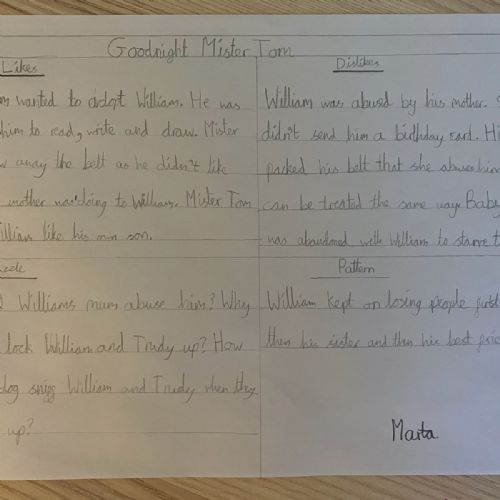 Goodnight Mister Tom
Likes
wanted to adopt William. He was
him to read, write and draw. Mister
away the belt as he didn't like
mother was doing to William. Mister Tom
William like his own son.
Dislikes
William was abused by his mother.
didn't send him a birthday card. Hi
packed his belt that she abuse him
can be treated the same way. Baby
was abandoned with William to starve t
Williams mum abuse him? Why
lock William and Trudy up? How
dog snigg William and Trudy when they
up?
Pattern
William kept on losing people first
then his sister and then his best frie
Marta